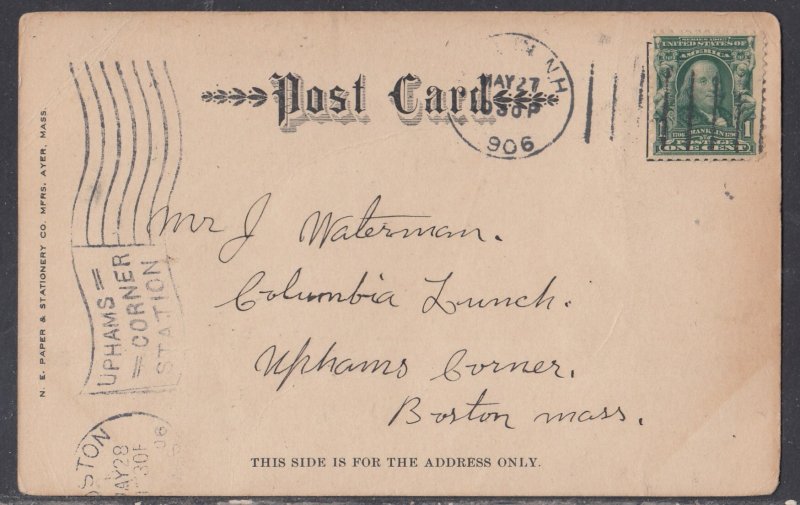 Post Card
NH
MAY 27
30 P
906
SERIES 1902
UNITED STATES OF
AMERICA
FRANKLIN
1
POSTAGE
ONE CENT
N. E. PAPER & STATIONERY CO. MFRS. AYER, MASS.
UPHAMS
CORNER
STATION
Mr J Waterman.
Columbia Lunch.
Uphams Corner.
Boston mass.
OSTON
MAY 28
30P
06
THIS SIDE IS FOR THE ADDRESS ONLY.